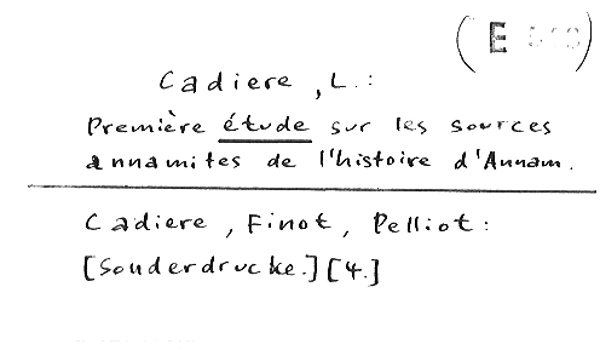 (E
Cadiere, L.:
Première étude sur les sources
annamites de l'histoire d'Annam.
Cadiere, Finot, Pelliot:
[Sonderdrucke.][4.]